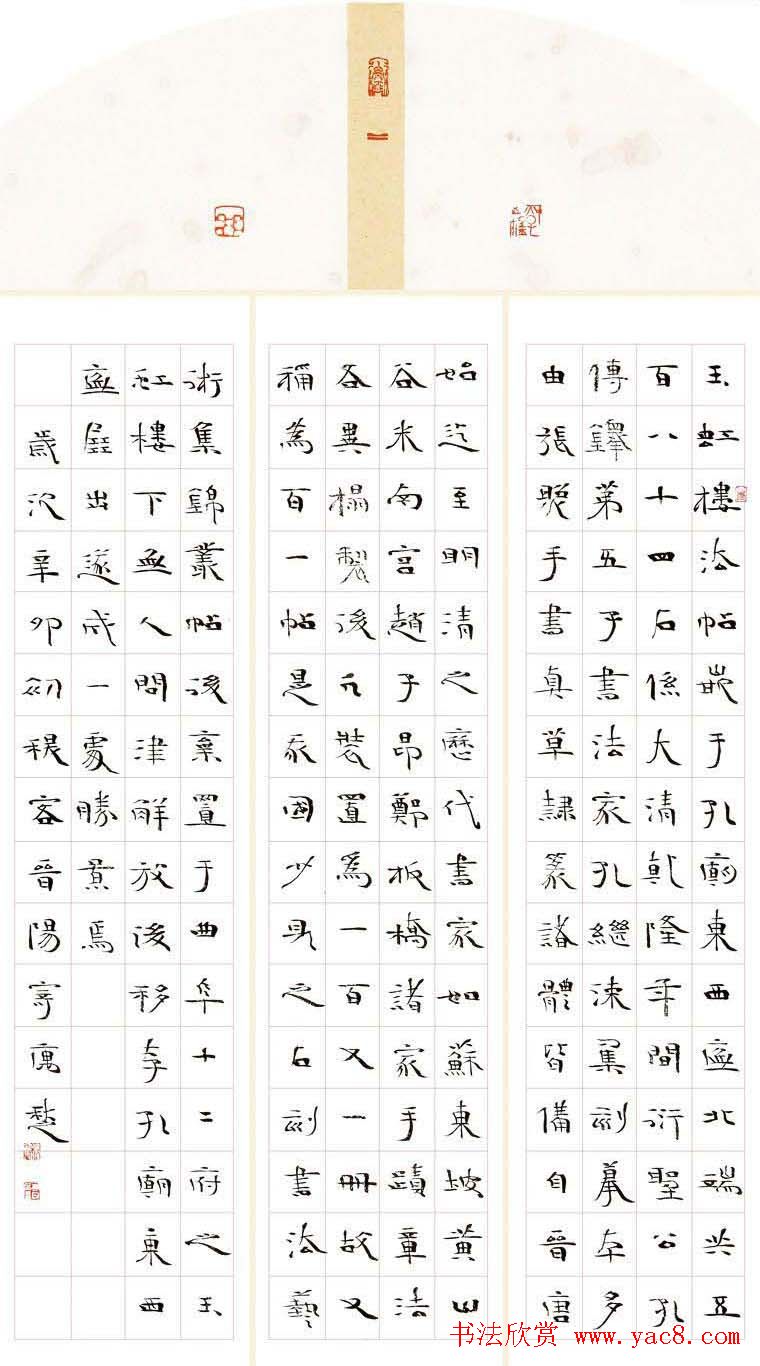 玉虹樓法帖嵌于孔廟東西廡北端共五
百八十四石係大清乾隆年間衍聖公孔
傳鐸第五子書法家孔繼涑集刻摹本多
由張照手書真草隸篆諸體皆備自晉唐
始迄至明清之歷代書家如蘇東坡黃山
谷米南宮趙子昂鄭板橋諸家手蹟章法
各異榻製後凡裝置為一百又一冊故又
稱為百一帖是我國少見之石刻書法藝
術集錦叢帖後棄置于曲阜十二府之玉
虹樓下無人問津解放後移存孔廟東西
廡展出遂成一處勝景焉
歲次辛卯初客晉陽寄寓
书法欣赏 www.yac8.com